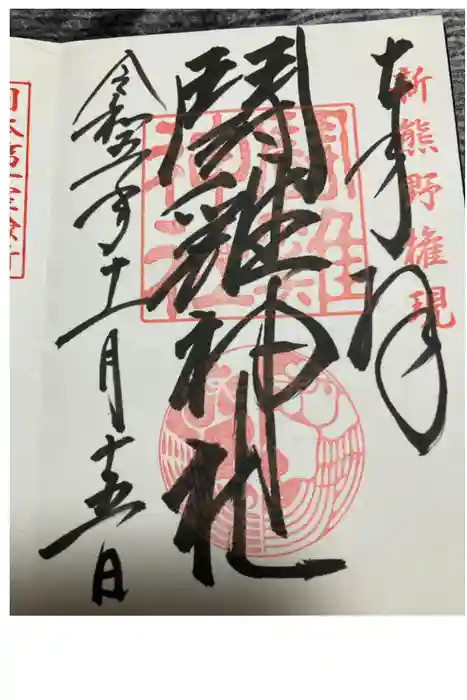 新熊野権現
奉拝
闘雞神社
闘雞神社
令和五年十一月十五日